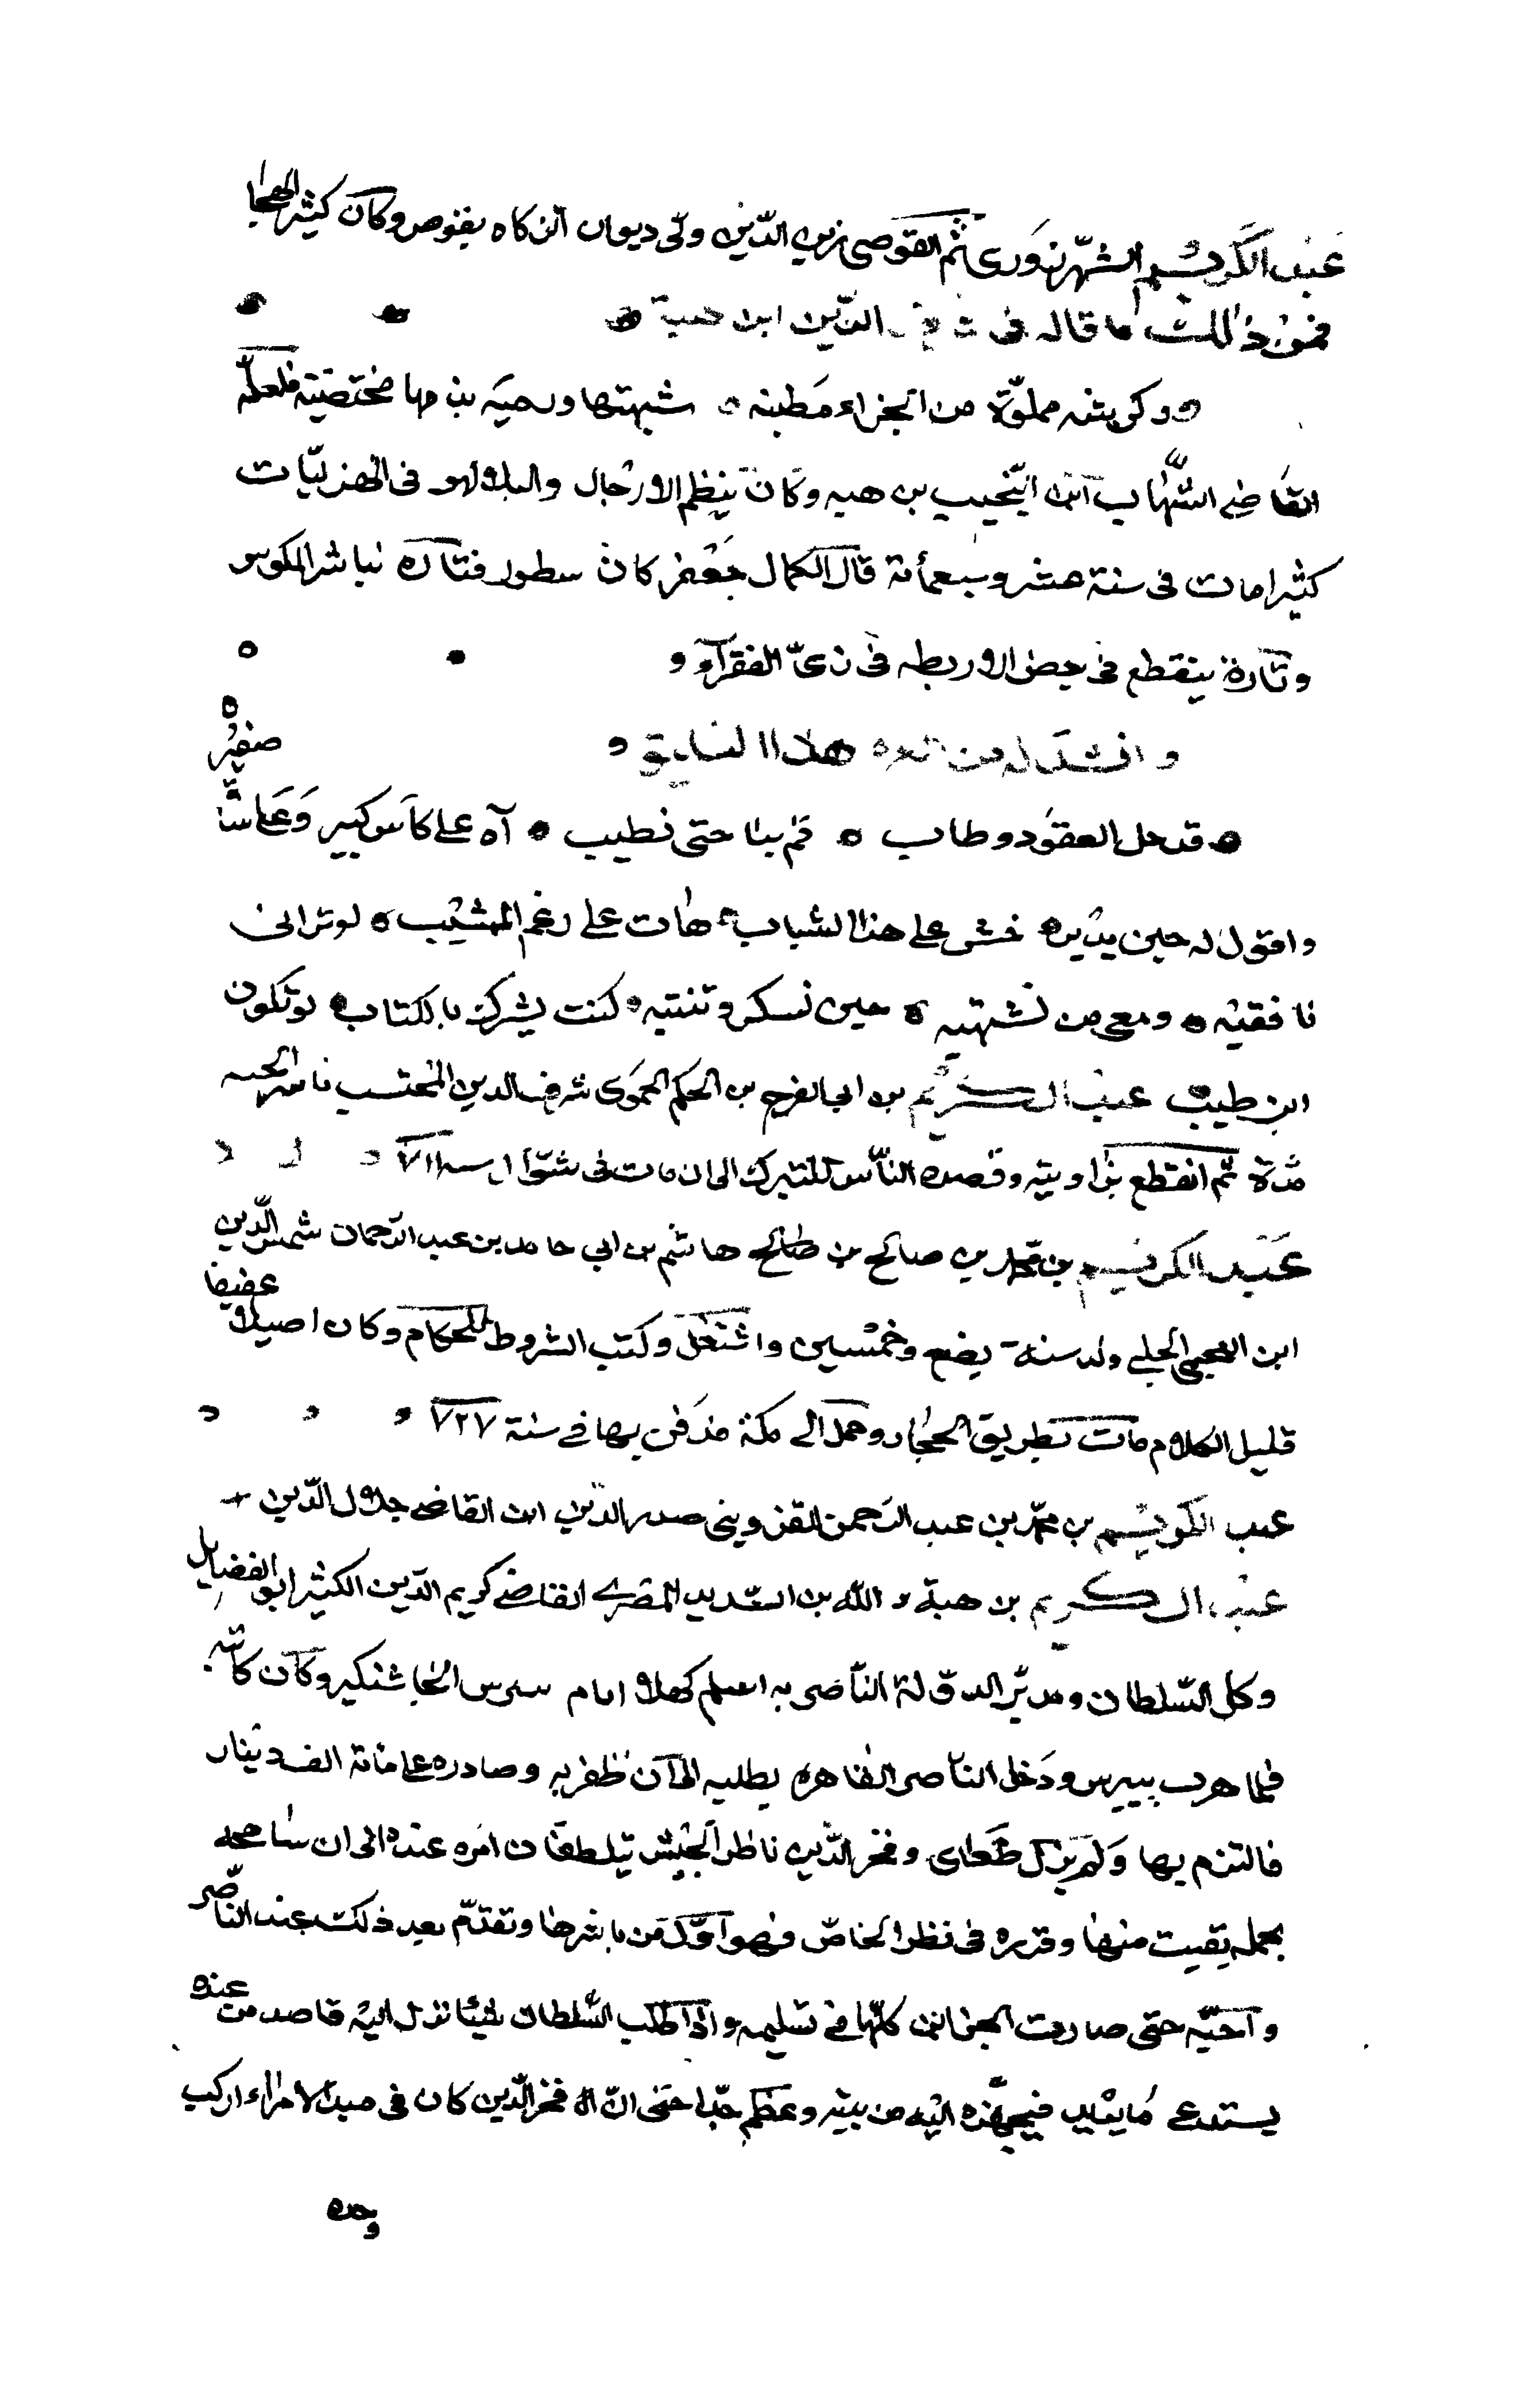 عبد الكريم الشهرزورى ثم القوصى زين الدين ولى ديوان الزكاه بقوص وكان كثير الهجا
فمن ذلك ما قاله فى الدين ابن هبة
وركربته مملوّة من الخراء مطبنه شبهتها ولحيه بذمها مختصيته فلعله
القاضى الشهاب ابن النجيب بن هبه وكان ينظم الازجال والبلاليو فى الهزليّات
كثيرا مات فى سنة عشر وسبعمأئة قال الكمال جعفر كان سطور فتاره يباشر المكوس
وتارة ينقطع فى بعض الاربطه فى زىّ الفقرآء
وانشد له من هذا السابق
صغير
قد حل العقود وطاب قم بنا حتى نطيب آه على كاس كبير وعلى شا
واقول له حين يديره خش على هذا الشباب هات على رغم المشيب لو ترانى
نا فقيه ومعى من نشتهيه حين نسكر وتنتيه كنت يشركن بالكتاب لو تكون
ابن طيب عبد الكريم بن ابى الفرج بن الحكم الحموى شرف الدين المحتسب باشر الحسبه
مدة ثم انقطع بزاويته وقصده الناس للتبرك الى ان مات فى شوال سنة ٧١١
عبد الكريم بن محمد بن صالح بن صالح هاشم بن ابى حامد بن عبد الرحمان شمس الدين
ابن العجمى الحلبى ولد سنة بضع وخمسين واشتغل وكتب الشروط للحكام وكان اصيلا عفيفا
قليل الكلام مات بطريق الحجاز وحمل الى مكة فدفن بها فى سنة ٧٢٧
عبد الكريم بن محمد بن عبد الرحمن القزوينى صدر الدين ابن القاضى جلال الدين
عبد الكريم بن هبة الله بن السديد المصرى القاضى كريم الدين الكبير ابو الفضايل
وكل السلطان ومدبّر الدولة الناصريه اسلم كهلا ايام بيبرس الجاشنكير وكان كاتبه
فلما هرب بيبرس ودخل الناصر القاهره يطلبه الى ان ظفر به وصادره على مائة الف دينار
فالتزم بها ولم يزل طغاى وفخر الدين ناظر الجيش يتلطفان امره عنده الى ان سامحه
بجمله بقيت منها وقرره فى نظر الخاصّ فهو اوّل من باشرها وتقدّم بعد ذلك عند الناصر
واحبّه حتى صارت الخزاين كلها فى تسليمه واذا طلب السلطان شيئا نزل اليه قاصد من عنده
يستدعى ما يريد فيجهّزه اليه من بيته وعظم جدا حتى ان فخر الدين كان فى صدر الامراء اركب
وحده